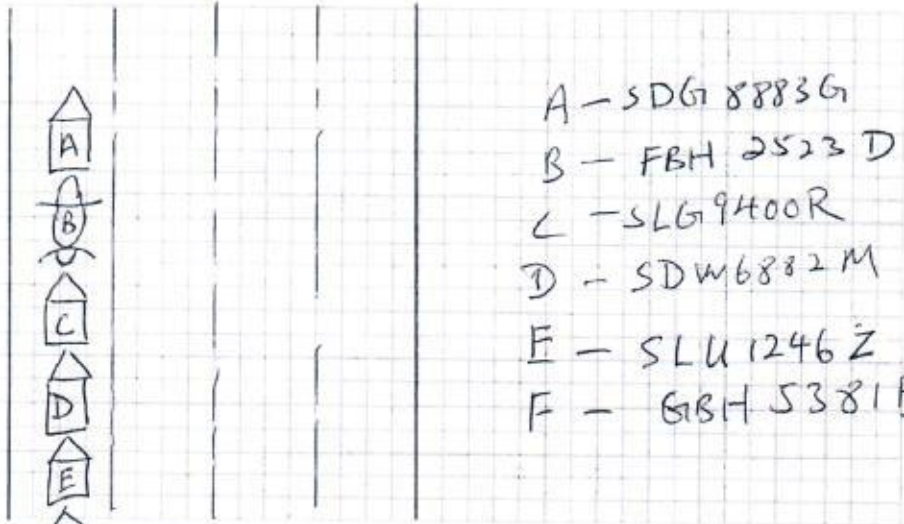 A
B
C
D
E
A - SDG 8883G
B - FBH 2523 D
C - SLG9400R
D - SDW6882M
E - SLU 1246 Z
F - GBH 5381